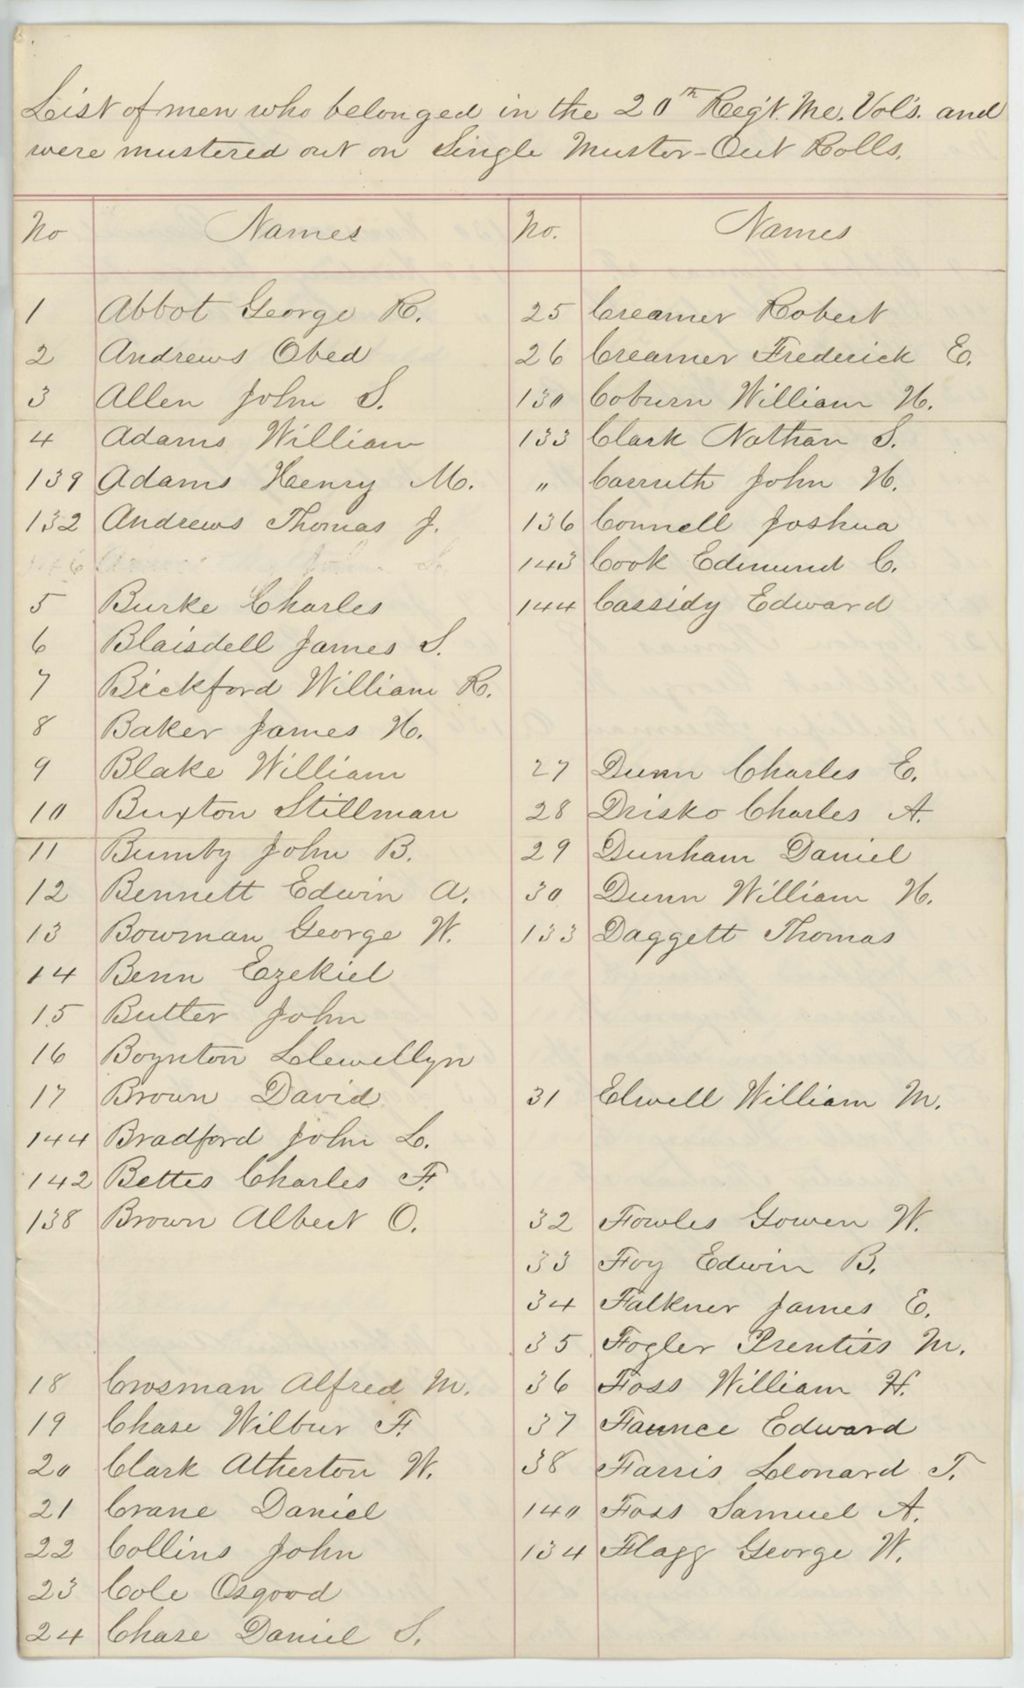 List of men who belonged in the 20th Reg't. Me. Vol's. and
were mustered out on Single Muster-Out Rolls.
No Names
1 Abbot George R.
2 Andrews Obed
3 Allen John S.
4 Adams William
139 Adams Henry M.
132 Andrews Thomas J.
5 Burke Charles
6 Blaisdell James S.
7 Bickford William R.
8 Baker James H.
9 Blake William
10 Buxton Stillman
11 Bumby John B.
12 Bennett Edwin A.
13 Bowman George W.
14 Benn Ezekiel
15 Butler John
16 Boynton Llewellyn
17 Brown David
144 Bradford John L.
142 Bettes Charles F.
138 Brown Albert O.
18 Crosman Alfred M.
19 Chase Wilbur F.
20 Clark Atherton W.
21 Crane Daniel
22 Collins John
23 Cole Osgood
24 Chase Daniel S.
No. Names
25 Creamer Robert
26 Creamer Frederick E.
130 Coburn William H.
133 Clark Nathan S.
" Carruth John H.
136 Connell Joshua
143 Cook Edmund C.
144 Cassidy Edward
27 Dunn Charles E.
28 Drisko Charles A.
29 Dunham Daniel
30 Dunn William H.
133 Daggett Thomas
31 Elwell William M.
32 Fowles Gowen W.
33 Foy Edwin B.
34 Falkner James E.
35 Fogler Prentiss M.
36 Foss William H.
37 Faunce Edward
38 Farris Leonard T.
140 Foss Samuel A.
134 Flagg George W.